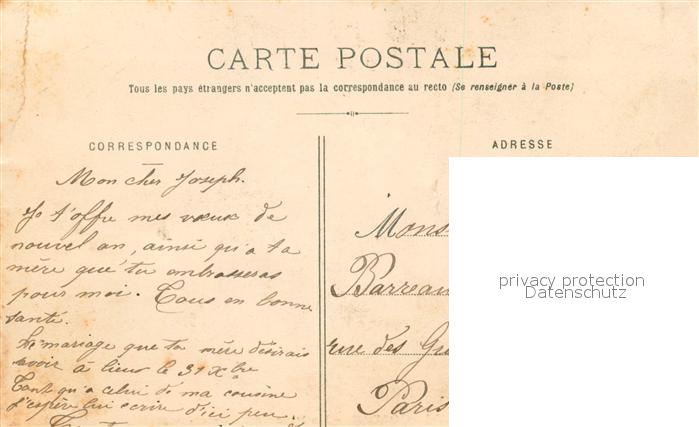 CARTE POSTALE
Tous les pays étrangers n'acceptent pas la correspondance au recto (Se renseigner à la Poste)
CORRESPONDANCE
Mon cher Joseph.
Je t'offre mes vœux de
nouvel an, ainsi qu'a ta
mère que tu embrasseras
pour moi. Tous en bonne
santé.
Le mariage que ta mère désirais
avoir à lieu le 31 Xbre
Tant qu'a celui de ma cousine
j'espère lui ecrire d'ici peu.
ADRESSE
Mons
Barreau
rue des Gu
Paris
privacy protection
Datenschutz